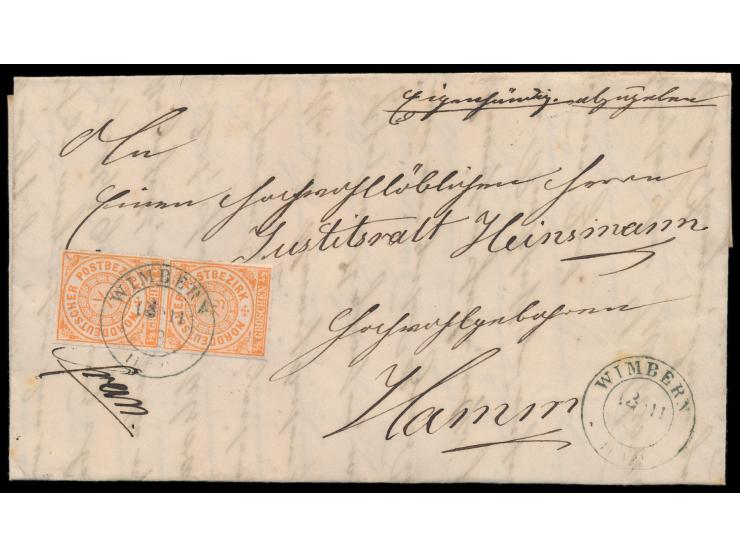 Eigenhändig abzugeben
An
Einen Hochwohllöblichen Herrn
Justitsralt Heinsmann
Hochwohlgeboren
Hamm
franco.
NORDDEUTSCHER POSTBEZIRK
NORDDEUTSCHER POSTBEZIRK
½ GROSCHEN
WIMBERN
WIMBERN